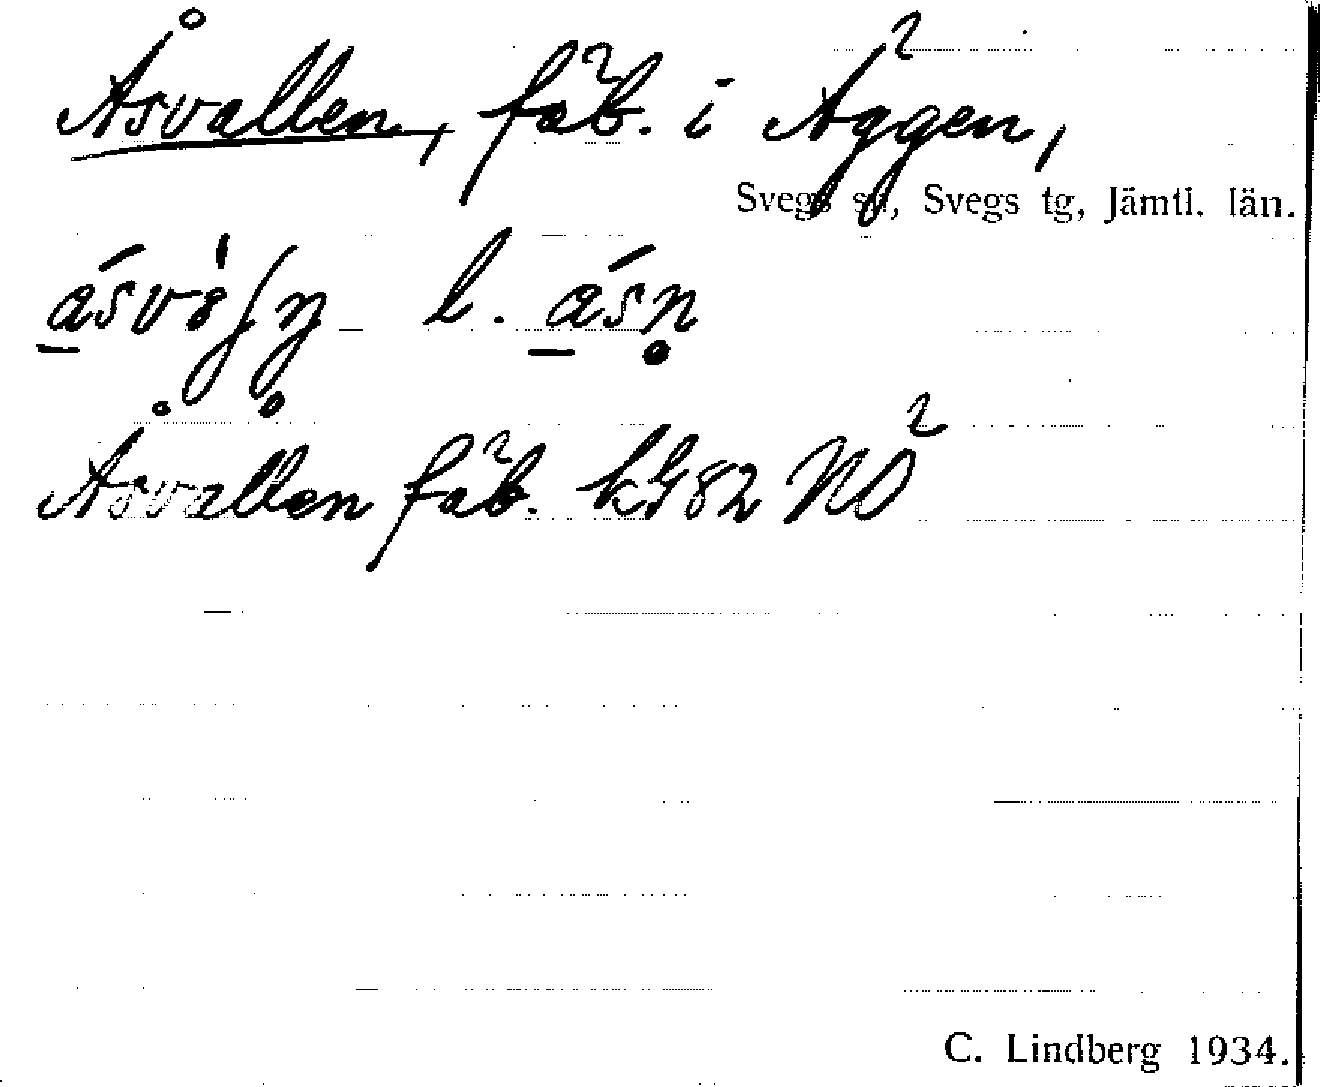 Åsvallen, fäb. i Äggen,
Svegs sn, Svegs tg, Jämtl. län.
l.
Åsvallen fäb. kG82 NO
C. Lindberg 1934.